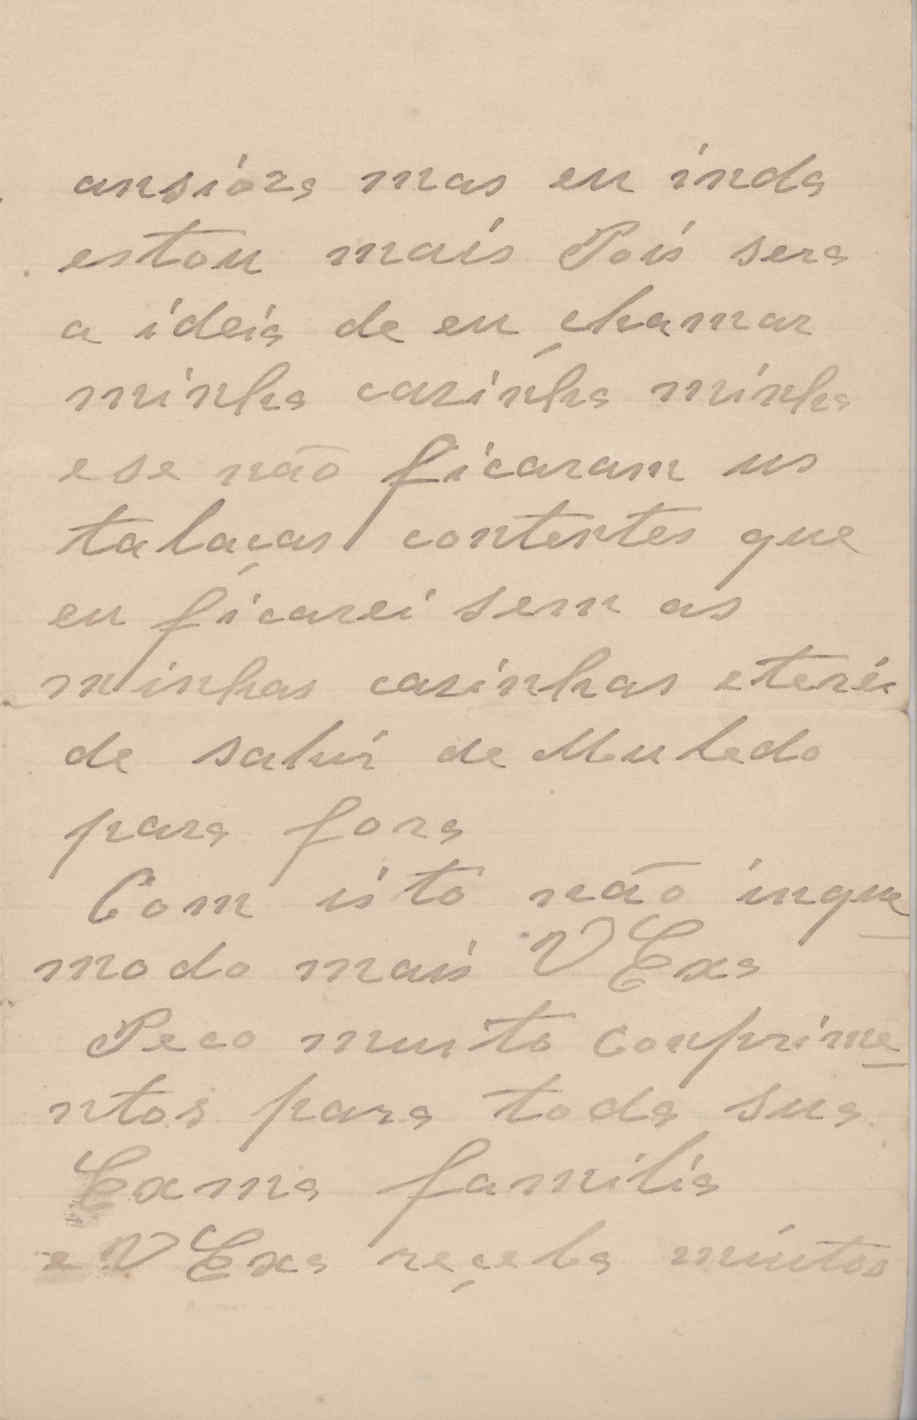 ansioza mas eu inda
estou mais Pois sera
a ideia de eu çhamar
minha cazinha minha
e se não ficaram us
talaças contentes que
eu ficarei sem as
minhas cazinhas e terei
de sahir de Muledo
para fora
Com isto não inque
modo mais V Exa
Peco muito Conprime
ntos para toda sua
Exma familia
e V Exa reçeba muitos